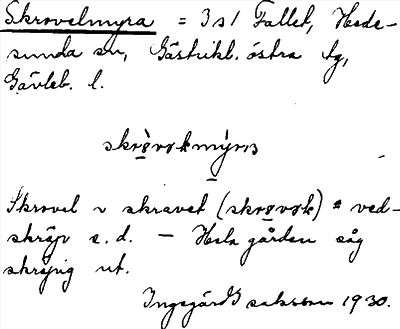 Skrovelmyra = 3 s 1 Fallet, Hede-
sunda sn, Gästrikl. östra tg,
Gävleb. l.
skròvəkmýra
Skrovel v skravel (skrovək) = ved-
skräp e. d. — Hela gården såg
skräpig ut.
Ingegärd Isaksson 1930.